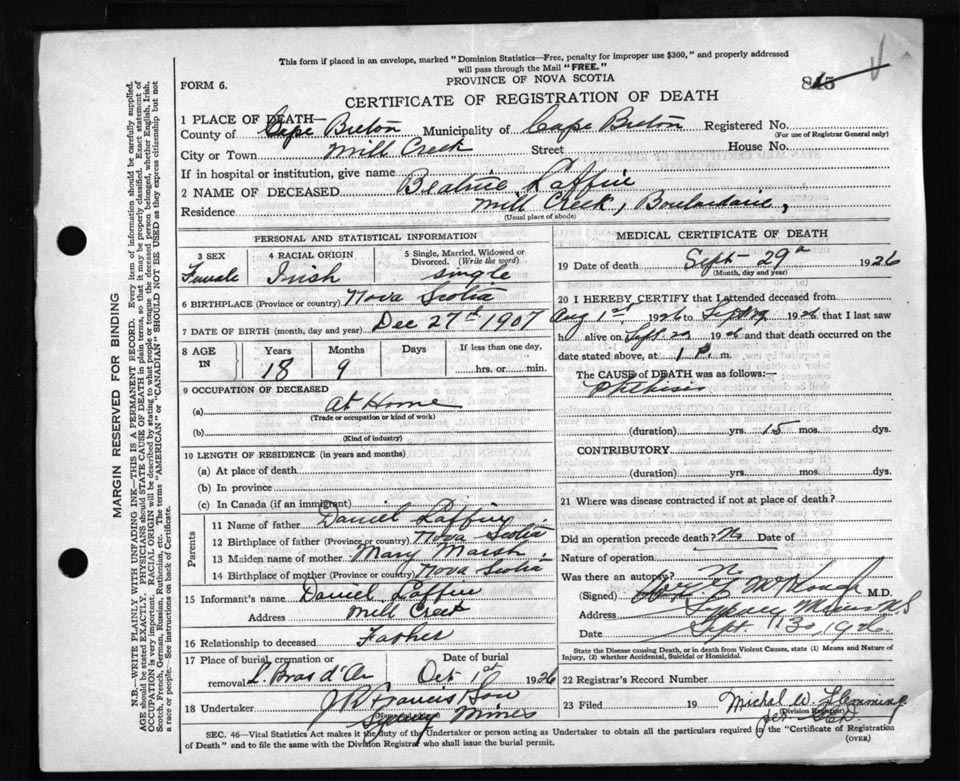 This form if placed in an envelope, marked "Dominion Statistics—Free, penalty for improper use $300," and properly addressed
will pass through the Mail "FREE."
FORM 6.
PROVINCE OF NOVA SCOTIA
CERTIFICATE OF REGISTRATION OF DEATH
1 PLACE OF DEATH—
County of Cape Breton Municipality of Cape Breton Registered No.
(For use of Registrar General only)
City or Town Mill Creek Street House No.
If in hospital or institution, give name
2 NAME OF DECEASED Beatrice Laffin
Residence Mill Creek, Boulardarie,
(Usual place of abode)
PERSONAL AND STATISTICAL INFORMATION
3 SEX Female
4 RACIAL ORIGIN Irish
5 Single, Married, Widowed or Divorced. (Write the word) single
6 BIRTHPLACE (Province or country) Nova Scotia
7 DATE OF BIRTH (month, day and year) Dec 27th 1907
8 AGE IN Years 18 Months 9 Days If less than one day, hrs. or min.
9 OCCUPATION OF DECEASED
(a) at Home
(Trade or occupation or kind of work)
(b)
(Kind of industry)
10 LENGTH OF RESIDENCE (in years and months)
(a) At place of death
(b) In province
(c) In Canada (if an immigrant)
Parents
11 Name of father Daniel Laffin
12 Birthplace of father (Province or country) Nova Scotia
13 Maiden name of mother Mary Marsh
14 Birthplace of mother (Province or country) Nova Scotia
15 Informant's name Daniel Laffin
Address Mill Creek
16 Relationship to deceased Father
17 Place of burial, cremation or removal L. Bras d'Or Date of burial Oct 1st 1926
18 Undertaker J Francis Son
Sydney Mines
MEDICAL CERTIFICATE OF DEATH
19 Date of death Sept 29th 1926
(Month, day and year)
20 I HEREBY CERTIFY that I attended deceased from
Aug 1st 1926 to Sept 1926 that I last saw
h alive on Sept. 1926 and that death occurred on the
date stated above, at 1 P. m.
The CAUSE of DEATH was as follows:—
Phthisis
(duration) yrs. 15 mos. dys.
CONTRIBUTORY
(duration) yrs. mos. dys.
21 Where was disease contracted if not at place of death?
Did an operation precede death? No Date of
Nature of operation
Was there an autopsy? No
(Signed) M.D.
Address Sydney Mines N.S
Date Sept. 30, 1926
State the Disease causing Death, or in death from Violent Causes, state (1) Means and Nature of
Injury, (2) whether Accidental, Suicidal or Homicidal.
22 Registrar's Record Number
23 Filed 19 Michal W. Flemming
(Division Registrar)
SEC. 46—Vital Statistics Act makes it the duty of the Undertaker or person acting as Undertaker to obtain all the particulars required in the "Certificate of Registration
of Death" and to file the same with the Division Registrar who shall issue the burial permit.
(OVER)
MARGIN RESERVED FOR BINDING
N.B.—WRITE PLAINLY WITH UNFADING INK—THIS IS A PERMANENT RECORD. Every item of information should be carefully supplied.
AGE should be stated EXACTLY. PHYSICIANS should STATE CAUSE OF DEATH in plain terms, so that it may be properly classified. Exact statement of
OCCUPATION is very important. RACIAL ORIGIN will be described by stating to what people or tongue the deceased person belonged, whether English, Irish,
Scotch, French, German, Russian, Ruthenian, etc. The terms "AMERICAN" or "CANADIAN" SHOULD NOT BE USED as they express citizenship but not
a race or people.—See instructions on back of Certificate.